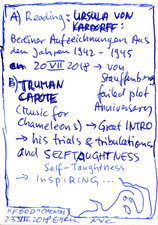 A) Reading: URSULA VON
KARDORFF:
Berliner Aufzeichnungen Aus
den Jahren 1942 - 1945
on 20 VII 2019 → von
Stauffenberg
failed plot
Anniversary
B) TRUMAN
CAPOTE
(Music for
chameleons) → Great INTRO
→ his trials & tribulations
and SELFTAUGHTNESS
Self-Taughtness
→ INSPIRING...
"FOOD"
NYC